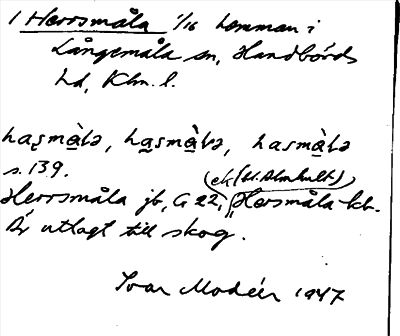 1 Herrsmåla 1/16 hemman i
Långemåla sn, Handbörds
hd, Klm. l.
hasmàlə, hasmàlə, hasmàlə
s. 139.
(ek (St. Almhult.)
Herrsmåla jb, G 22, Hersmåla kb.
Är utlagt till skog.
Ivar Modéer 1947